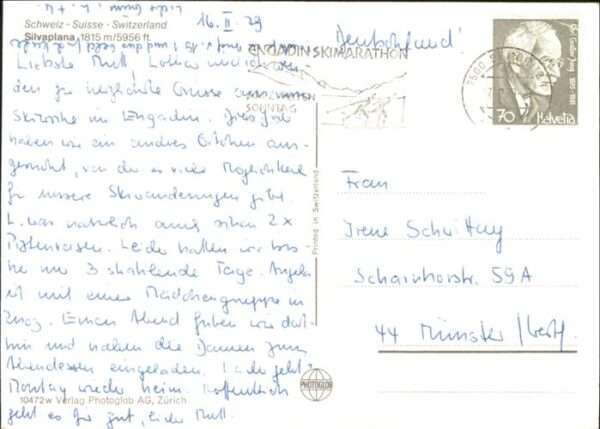 Schweiz - Suisse - Switzerland
Silvaplana 1815 m/5956 ft.
16. II. 79
Deutschland!
ENGADIN SKIMARATHON
SONNTAG
70 Helvetia
Liebste Mutt!
herzliche Grüsse aus unserer
Skiwoche im Engadin. Dies Jahr
haben wir ein andres Örtchen aus-
gesucht, von der es viele Möglichkeit
für unsere Skiwanderungen gibt.
L. war natürlich auch schon 2x
Pistenrasen. Leider hatten wir bis-
he nur 3 strahlende Tage. Angela
ist mit einer Mädchengruppe in
Zuoz. Einen Abend fuhren wir dort
hin und nahmen die Damen zum
Abendessen eingeladen. Leider geht's
Montag wieder heim. Hoffentlich
geht es Dir gut, liebe Mutt.
10472w Verlag Photoglob AG, Zürich
PHOTOGLOB
Printed in Switzerland
Frau
Irene
Scharnhorststr. 59A
44 Münster/Westf.